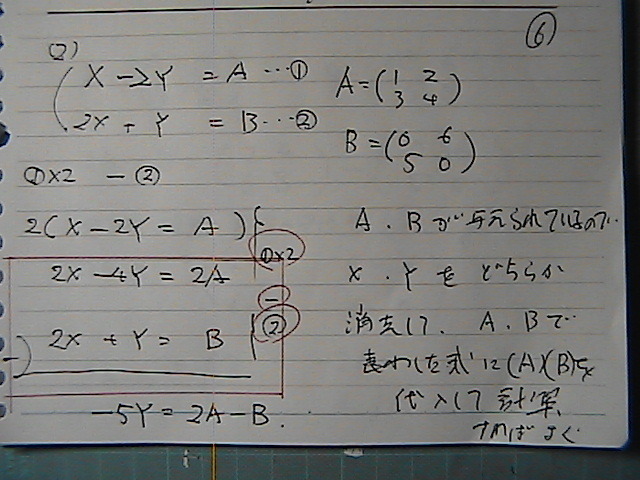 ⑥
(2)
X - 2Y = A … ①
2X + Y = B … ②
A = (1 2
3 4)
B = (0 6
5 0)
①×2 - ②
2(X - 2Y = A)
①×2
2X - 4Y = 2A
-
2X + Y = B
②
-)
-5Y = 2A - B.
A. Bが与えられているので.
X. Yをどちらか
消去して. A. Bで
表わした式に(A)(B)を
代入して計算
すればよく